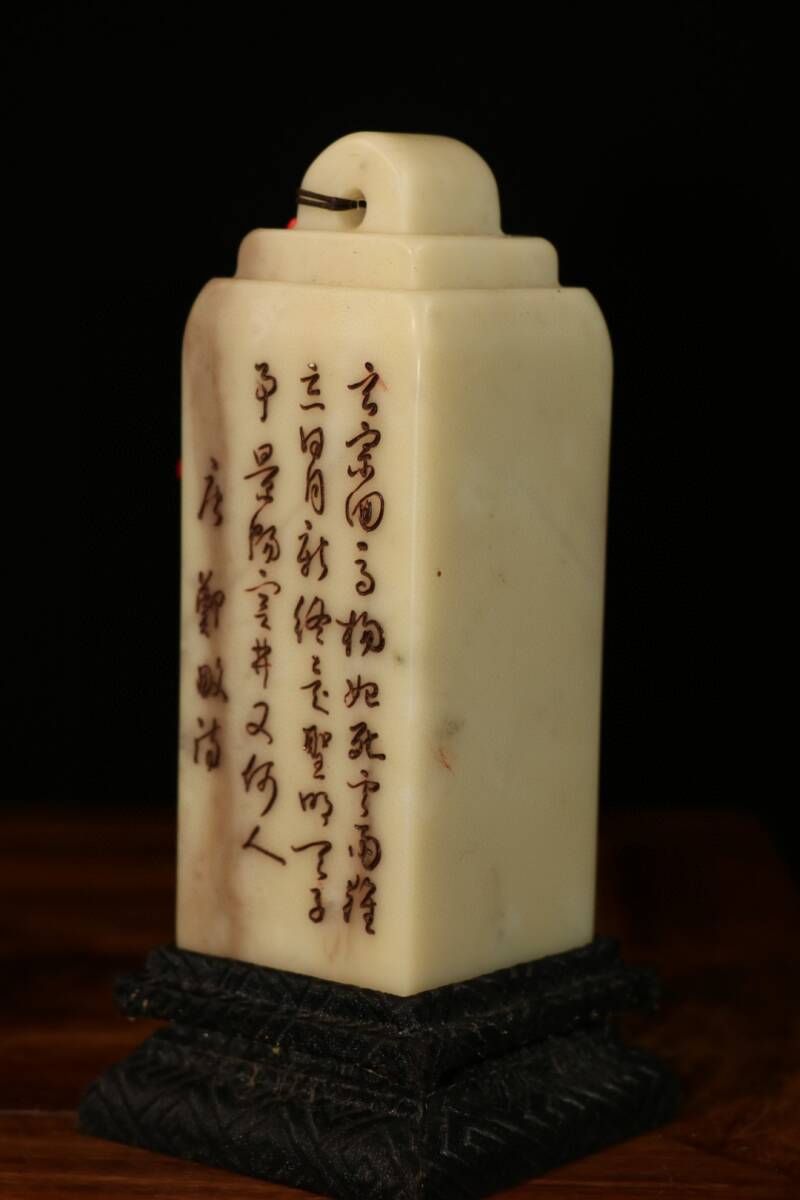 玄宗回馬楊妃死云雨難
忘日月新終是聖明天子
事景陽宮井又何人
唐 鄭畋詩